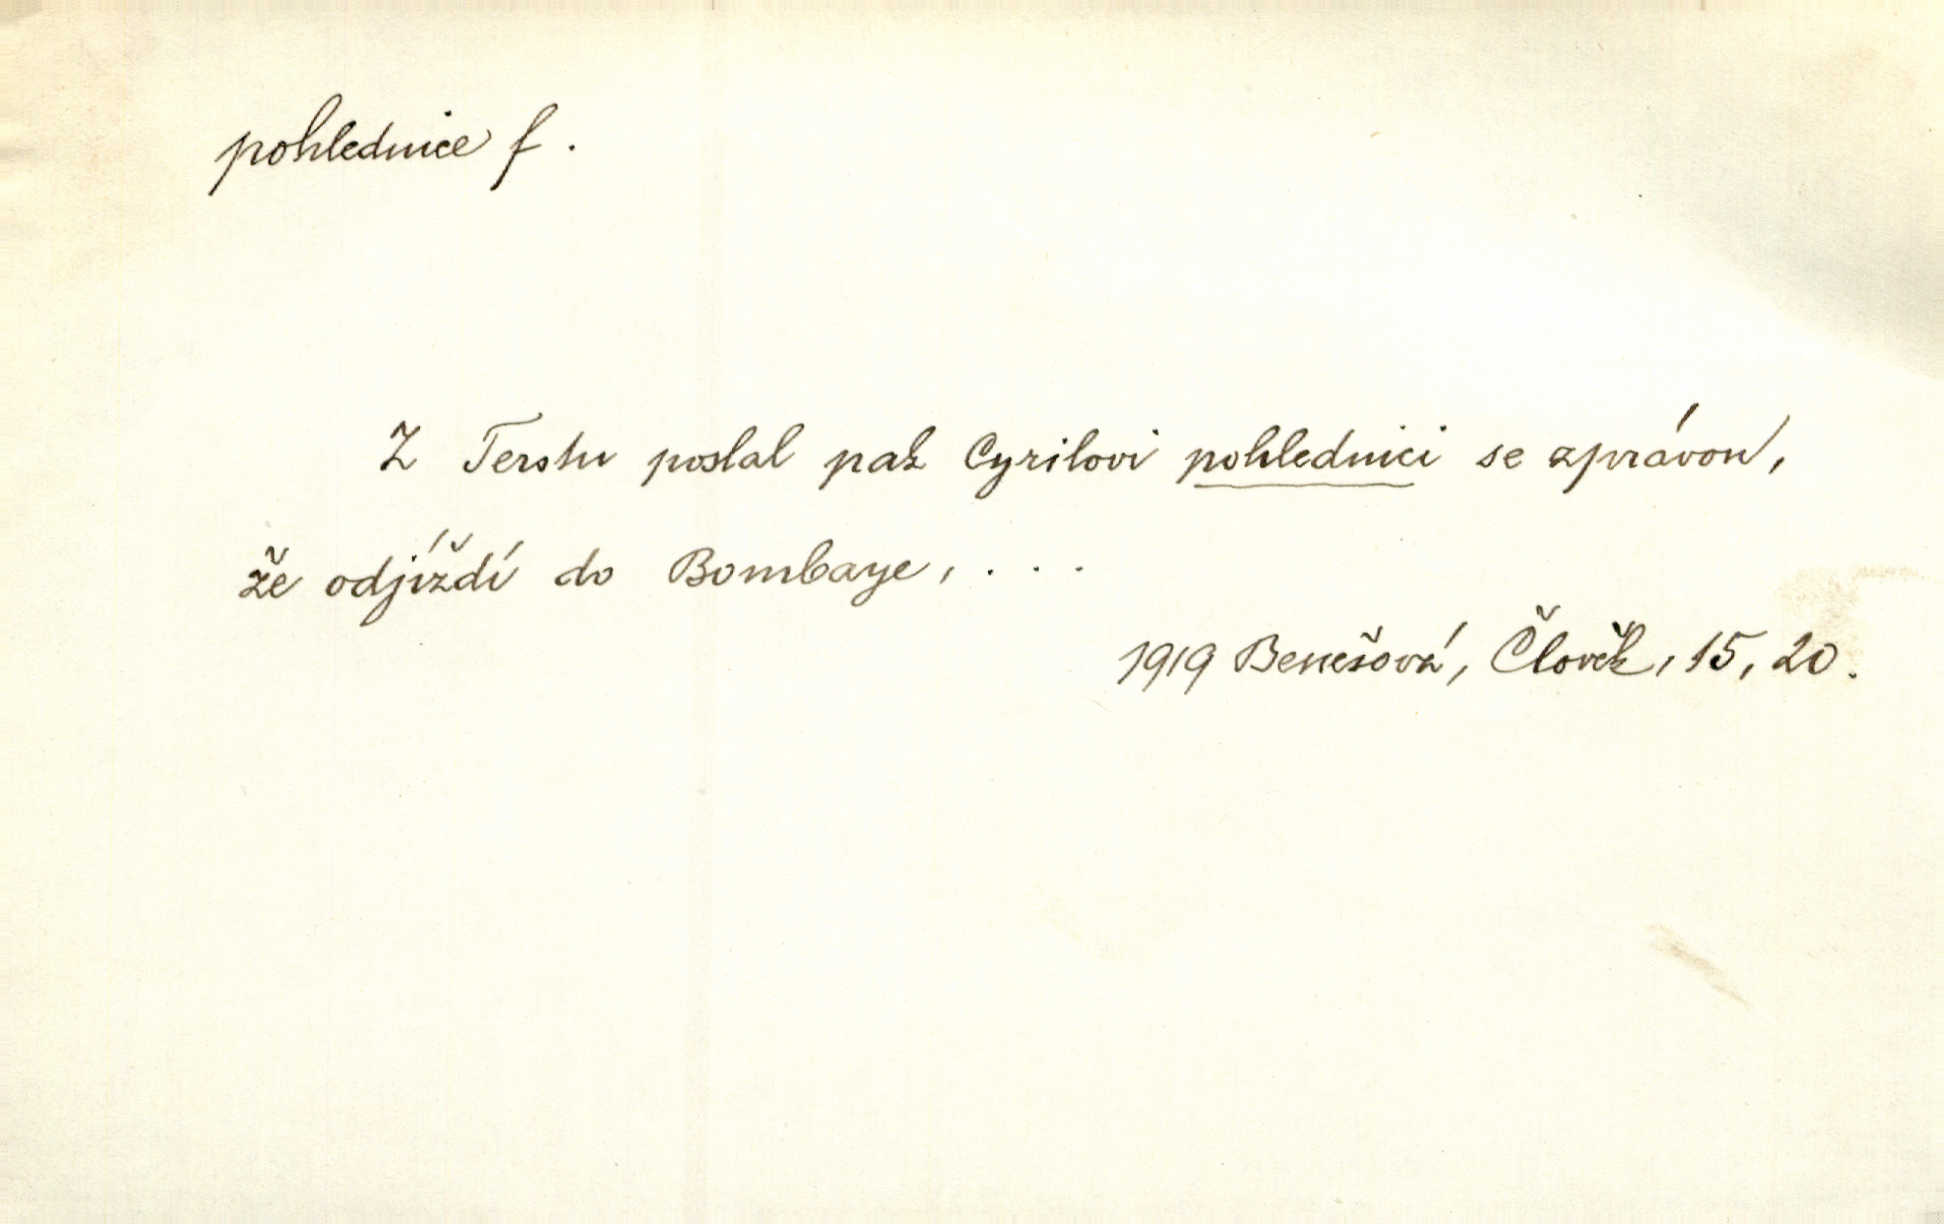 pohlednice f.
Z Terstu poslal pak Cyrilovi pohlednici se zprávou,
že odjíždí do Bombaye, . . .
1919 Benešová, Člověk, 15, 20.